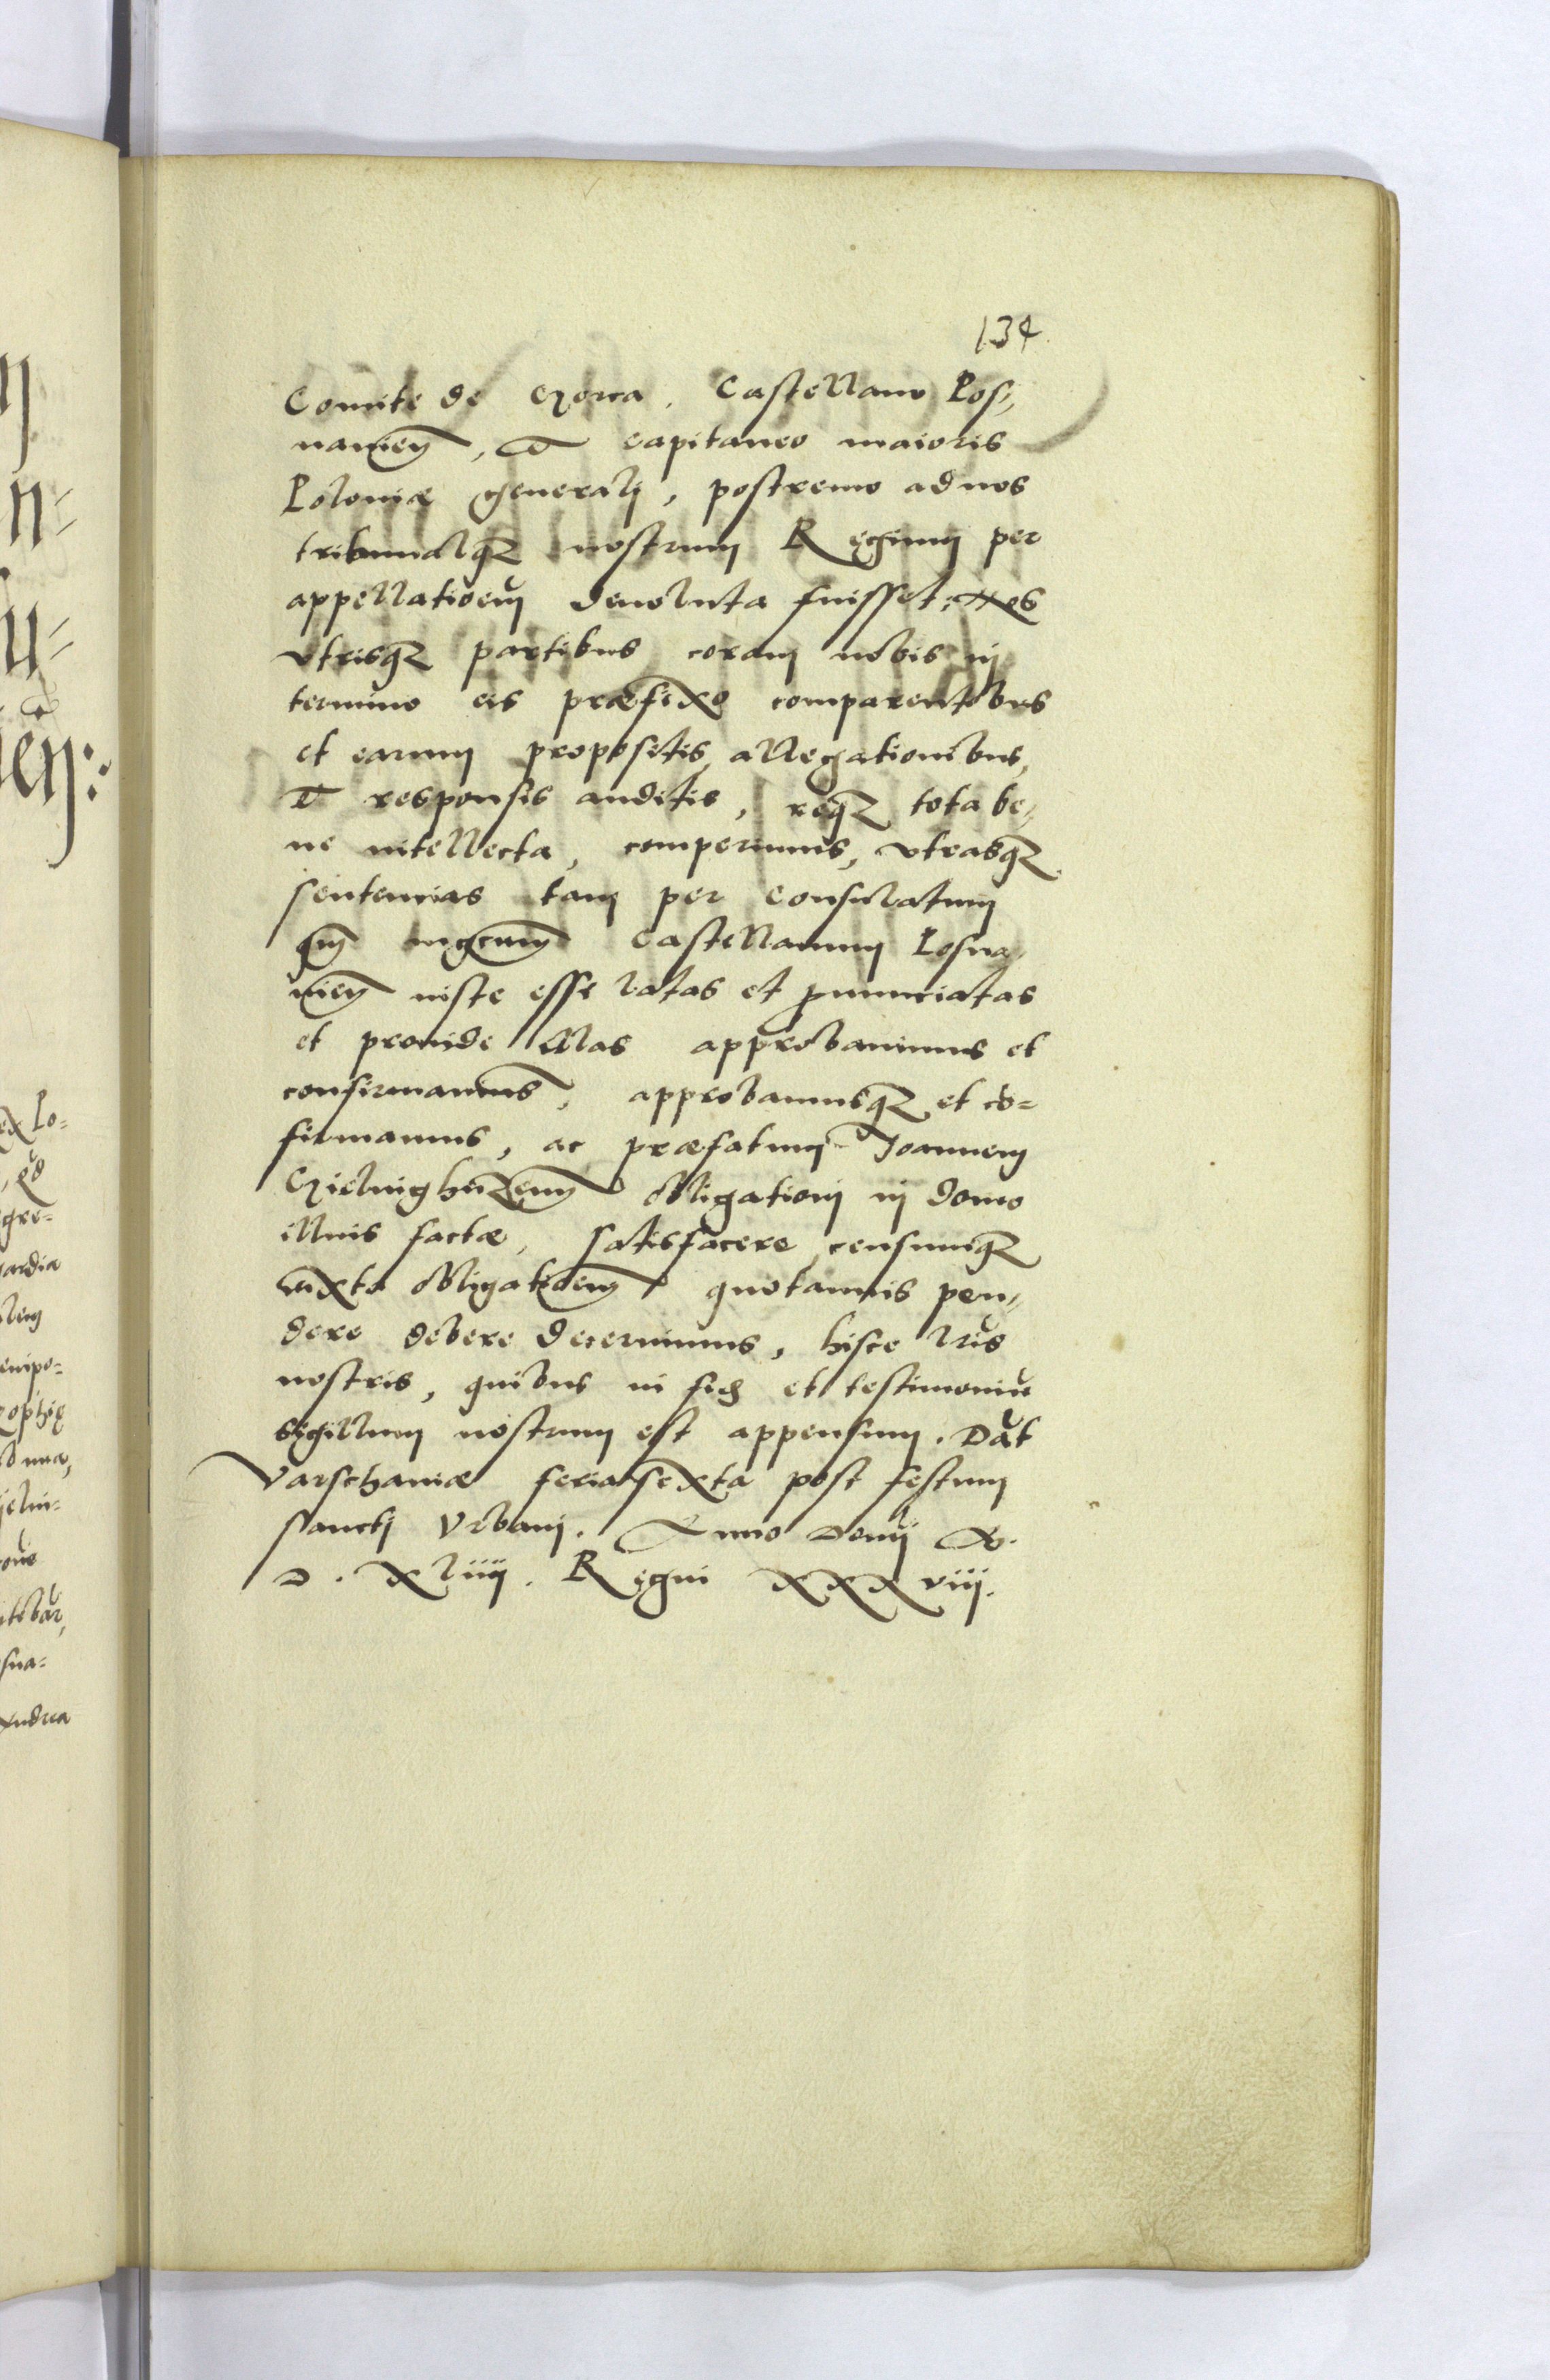 134
Comite de Gorca, Castellano Pos,
namieñ, et capitaneo maioris
Poloniæ generalj, postremo ad nos
tribunalqꝫ nostrum Regium per
appellatioem deuoluta fuisset: Nos
vtrisqꝫ partibus coram nobis in
termino eis præfixo comparentibus
et earum propositis, allegationibus,
et responsis auditis, reqꝫ tota be,
ne intellecta, comperimus, vtrasqꝫ
sententias tam per Consulatum
qm̃ mgcum̃ Castellanum Posna,
nieñ iuste esse latas et ꝓnunciatas
et prouide illas approbauimus et
confirmauimus, approbamusqꝫ et cõ=
firmamus, ac præfatum Joannem
obligationj in domo
illius factæ, satisfacere, censumqꝫ
iuxta obligatioem̃ quotannis pen,
dere debere decernimus, hisce lrĩs
nostris, quibus in fidẽ et testimoniũ
sigillum nostrum est appensum. Dat̃
Varschauiæ feria sexta post festum
sanctj Vrbanj. Anno Domĩ M.
D. XLiiij. Regni XXXviij.
n
n=
u=
eñ:
ex Po=
gre=
ardia
lem
enipo=
ophię
jelin=
itibur,
sna=
Andrea